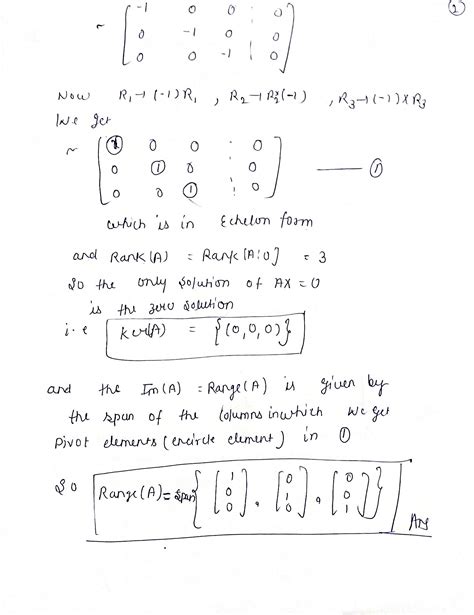 2
~ [ -1 0 0 : 0
0 -1 0 0
0 0 -1 | 0 ]
Now R₁→(-1)R₁ , R₂→R₂×(-1) , R₃→(-1)×R₃
We get
~ [ 1 0 0 : 0
0 1 0 : 0
0 0 1 | 0 ] —— ①
which is in Echelon form
and Rank(A) = Rank[A:0] = 3
So the only solution of AX=0
is the zero solution
i.e Ker(A) = {(0,0,0)}
and the Im(A) = Range(A) is given by
the span of the columns in which we get
pivot elements (encircle element) in ①
So Range(A) = span { [1 0 0], [0 1 0], [0 0 1] } Ans